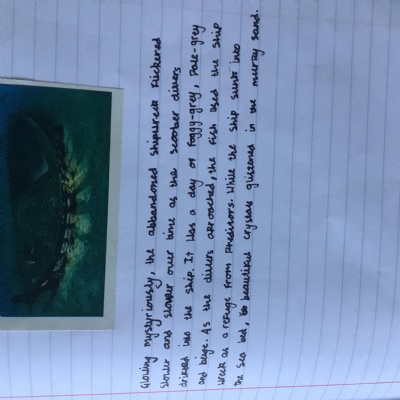 Glowing mystyriously, the abbandoned shipwreck flickered
slower and slower over time as the scoober divers
drifted into the ship. It was a day of foggy-grey, pale-grey
and beige. As the divers approached, the fish used the ship
wreck as a refuge from predisors. While the ship sunk into
the sea bed, the beautiful crystals glistened in the murky sand.